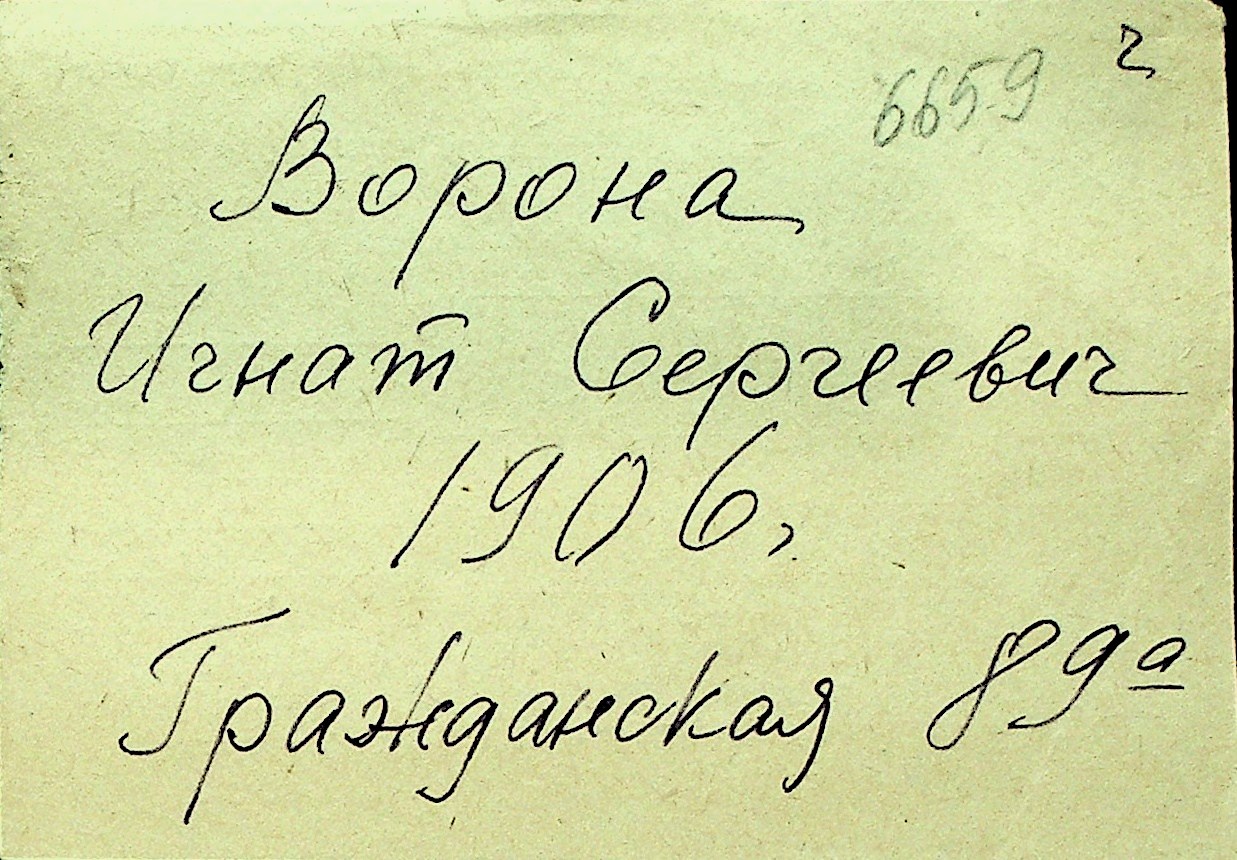 6659 г
Ворона
Игнат Сергеевич
1906,
Гражданская 89а